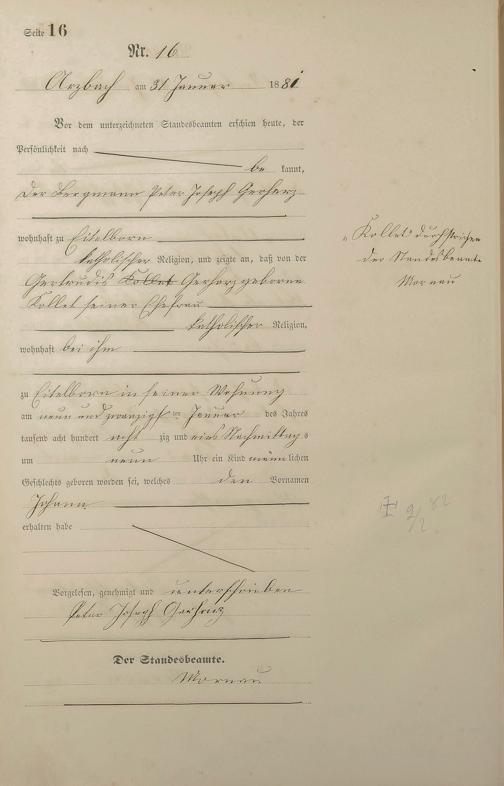 Seite 16
Nr. 16
Arzbach am 31 Januar 1881
Vor dem unterzeichneten Standesbeamten erschien heute, der
Persönlichkeit nach
be kannt,
der Bergmann Peter Joseph Gerharz
wohnhaft zu Eitelborn
katholischer Religion, und zeigte an, daß von der
Gertrudis Kollet Gerharz geborene
Kollet seiner Ehefrau
katholischer Religion,
wohnhaft bei ihm
zu Eitelborn in seiner Wohnung
am neun und zwanzigsten Januar des Jahres
tausend acht hundert acht zig und eins Nachmittags
um neun Uhr ein Kind männlichen
Geschlechts geboren worden sei, welches den Vornamen
Johann
erhalten habe
Vorgelesen, genehmigt und unterschrieben
Peter Joseph Gerharz
Der Standesbeamte.
Mornau
„Kollet“ durchstrichen
der Standesbeamte
Mornau
9/2 82